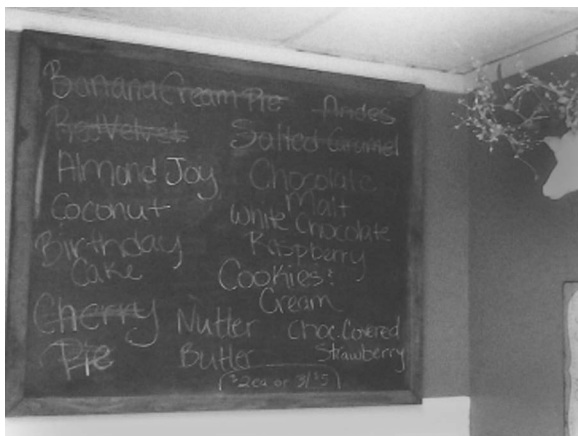 Banana Cream Pie
Red Velvet
Almond Joy
Coconut
Birthday
Cake
Cherry
Pie
Andes
Salted Caramel
Chocolate
Malt
White Chocolate
Raspberry
Cookies &
Cream
Nutter
Butter
Choc. Covered
Strawberry
$2ea or 3/$5